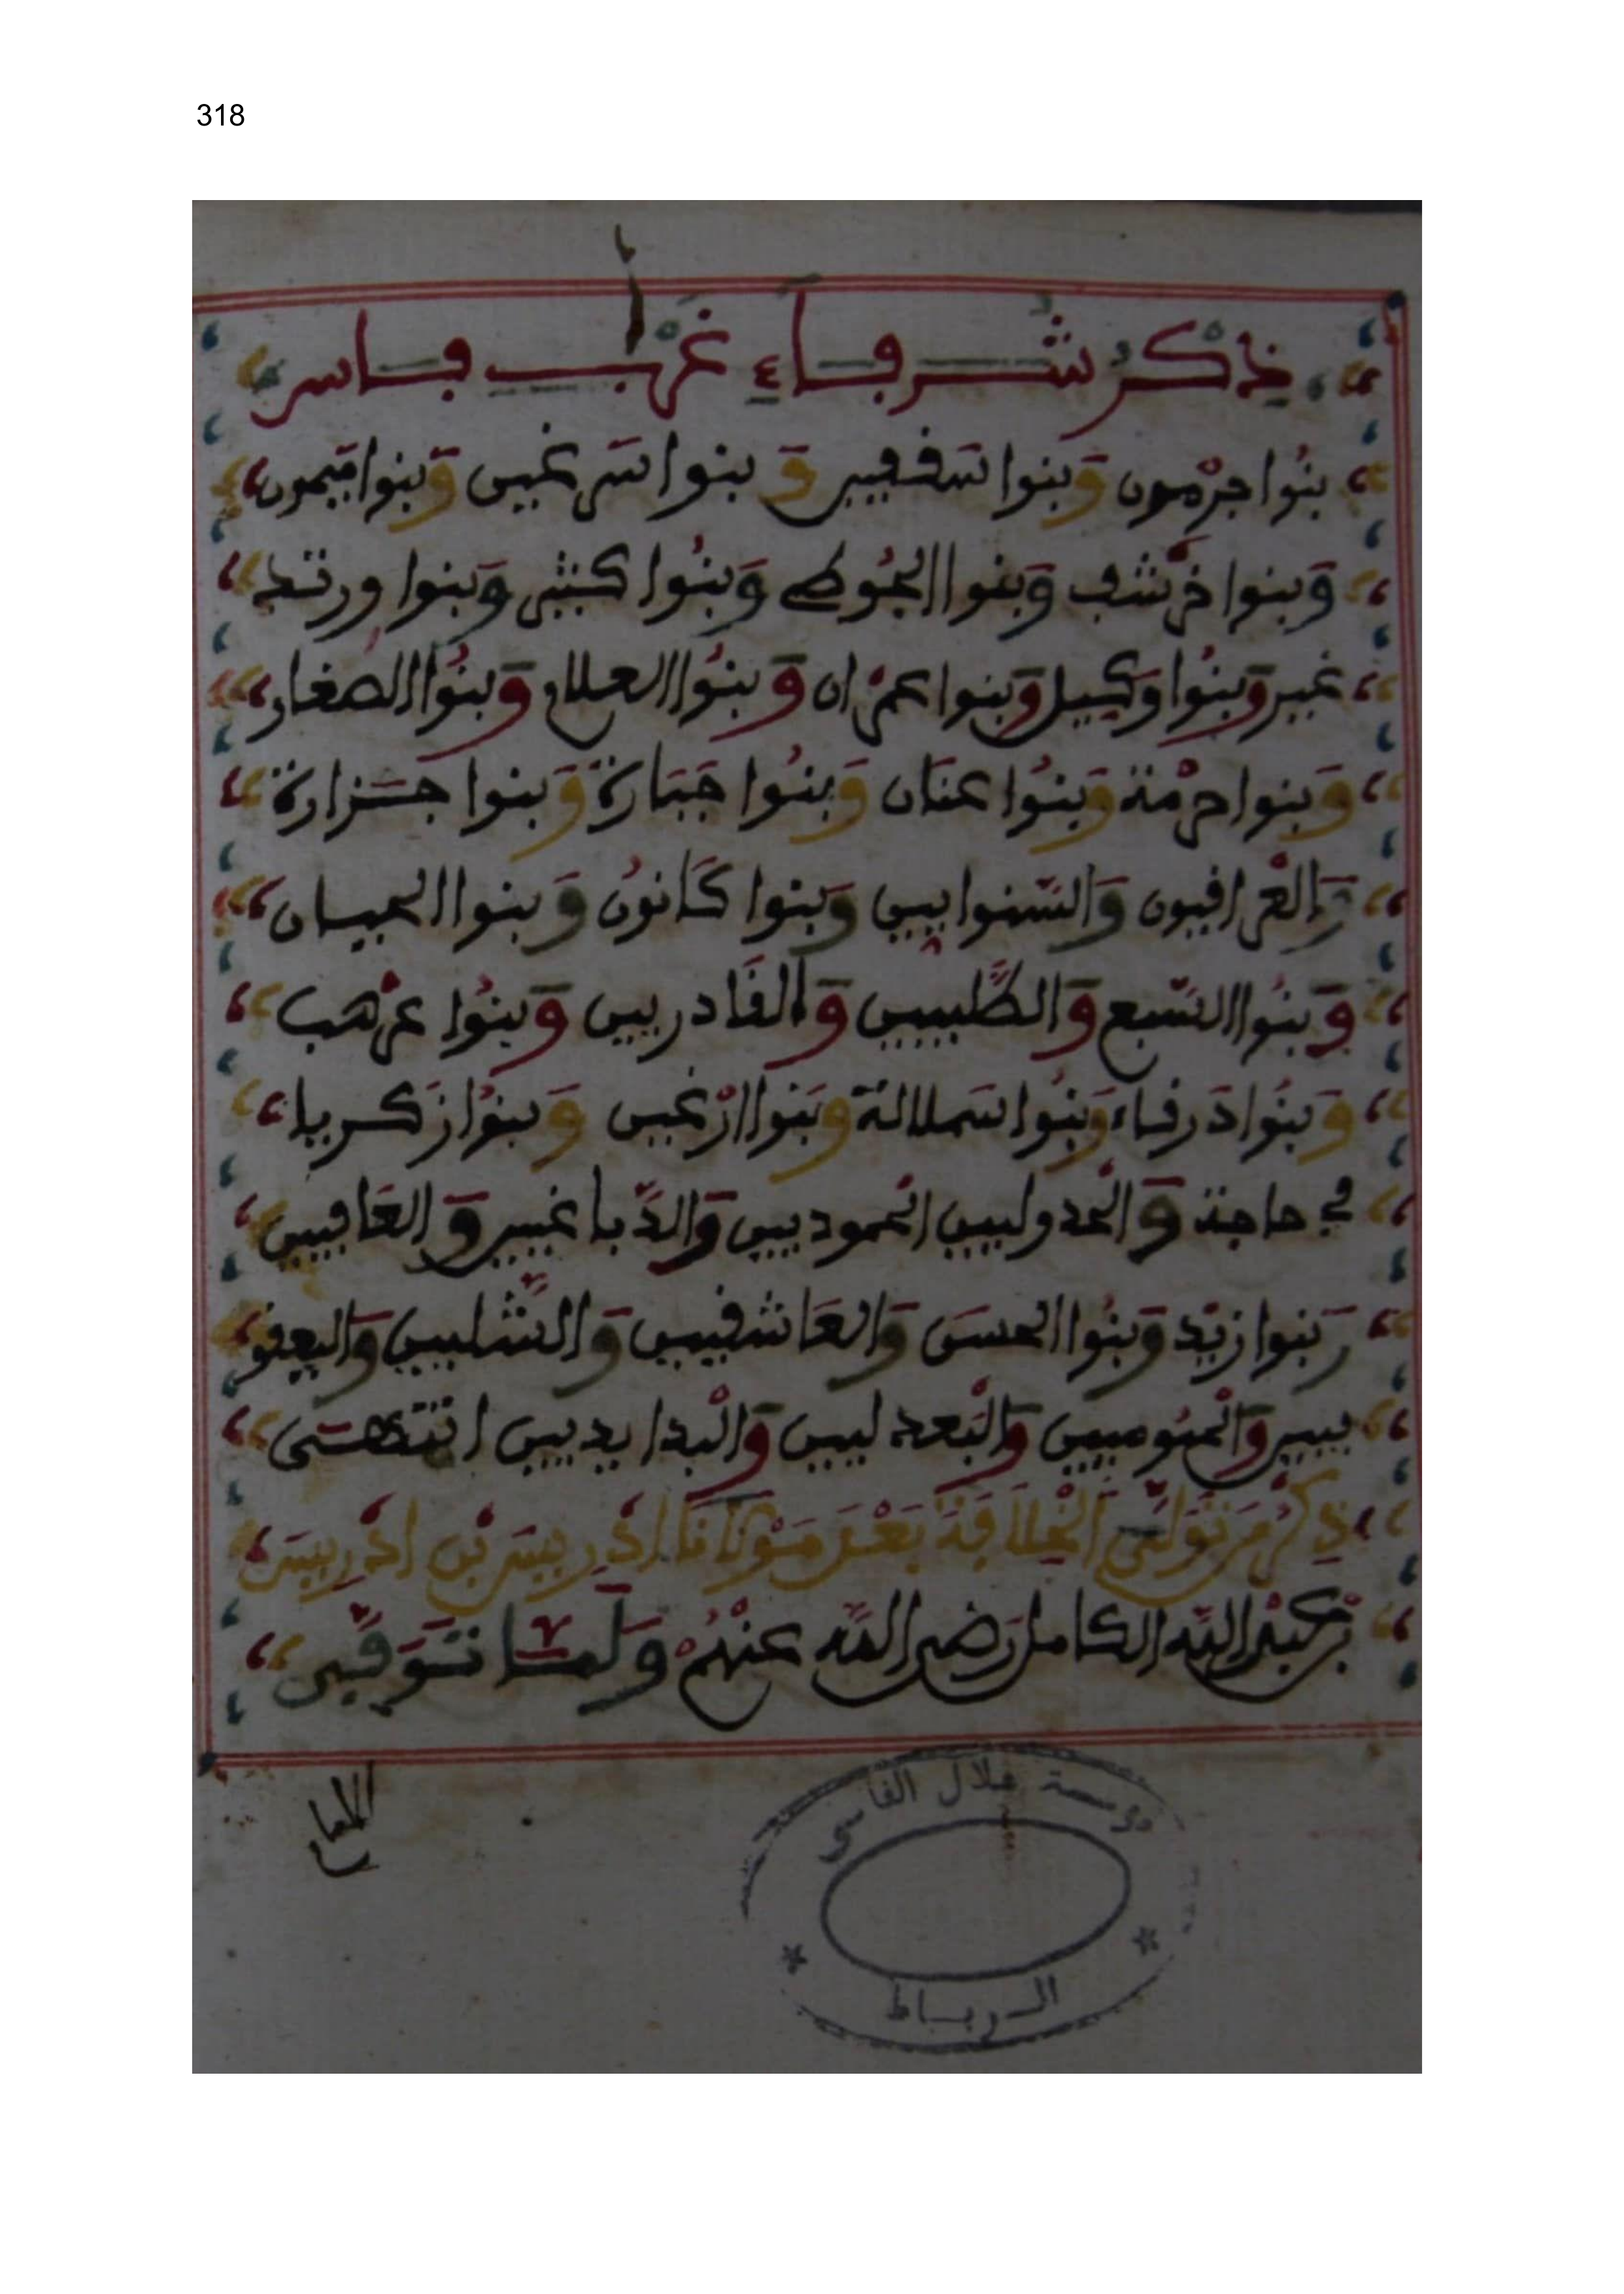 318
ذكر شرفاء غرب فاس
بنوا جرمون وبنوا شفقير وبنوا سرغين وبنوا ميمون
وبنوا خرشف وبنوا الجوطي وبنوا كنثي وبنوا ورتد
غير وبنوا وكيل وبنوا عمران وبنوا العلاج وبنوا الصغار
وبنوا حرمة وبنوا عنان وبنوا جبارة وبنوا جزارة
والعراقيون وبنوا كانون وبنوا
وبنوا السبع والطيبيين والقادريين وبنوا
وبنوا درقاء وبنوا سملالة وبنوا ازغين وبنوا زكرياء
في حاجة والدباغيين والعافيين
وبنوا زيد وبنوا الحسن والعاشقيين والشليين واليعقو
بيين والمومنيين انتهى
ذكر من تولى الخلافة بعد مولانا ادريس بن ادريس
بن عبد الله الكامل رضي الله عنهم ولما توفي
مؤسسة علال الفاسي
الرباط